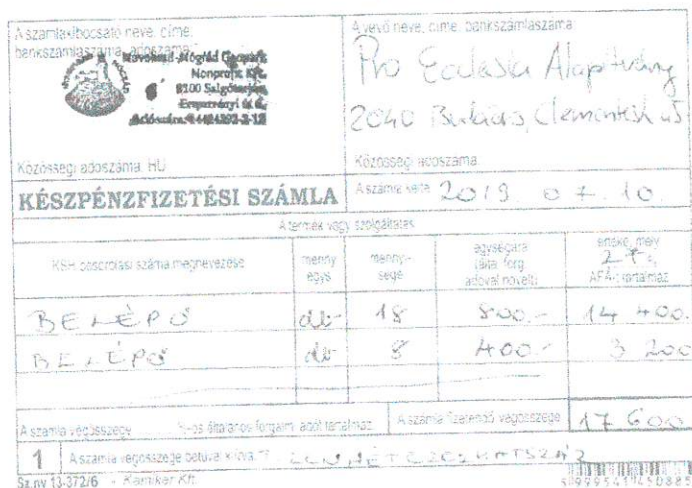 A számlakibocsátó neve, címe,
bankszámlaszáma, adószáma:
Novohrad-Nógrád Geopark
Nonprofit Kft.
3100 Salgótarján,
Közösségi adószáma: HU
A vevő neve, címe, bankszámlaszáma:
Pro Ecclesia Alapítvány
2040 Budaörs, Clementisz u 5
Közösségi adószáma:
KÉSZPÉNZFIZETÉSI SZÁMLA
A számla kelte: 2019 07. 10.
A termék vagy szolgáltatás
KSH besorolási száma megnevezése
menny. egys.
menny-sége
egységára (ált. forg. adóval növelt)
értéke, mely 27 %
ÁFÁ-t tartalmaz
BELÉPŐ db 18 800.- 14 400.
BELÉPŐ db 8 400.- 3 200
A számla végösszege %-os általános forgalmi adót tartalmaz
A számla fizetendő végösszege 17 600
1 A számla végösszege betűvel kiírva:
Sz.ny 13-372/6 - Kamiker Kft.
5 999541 450885